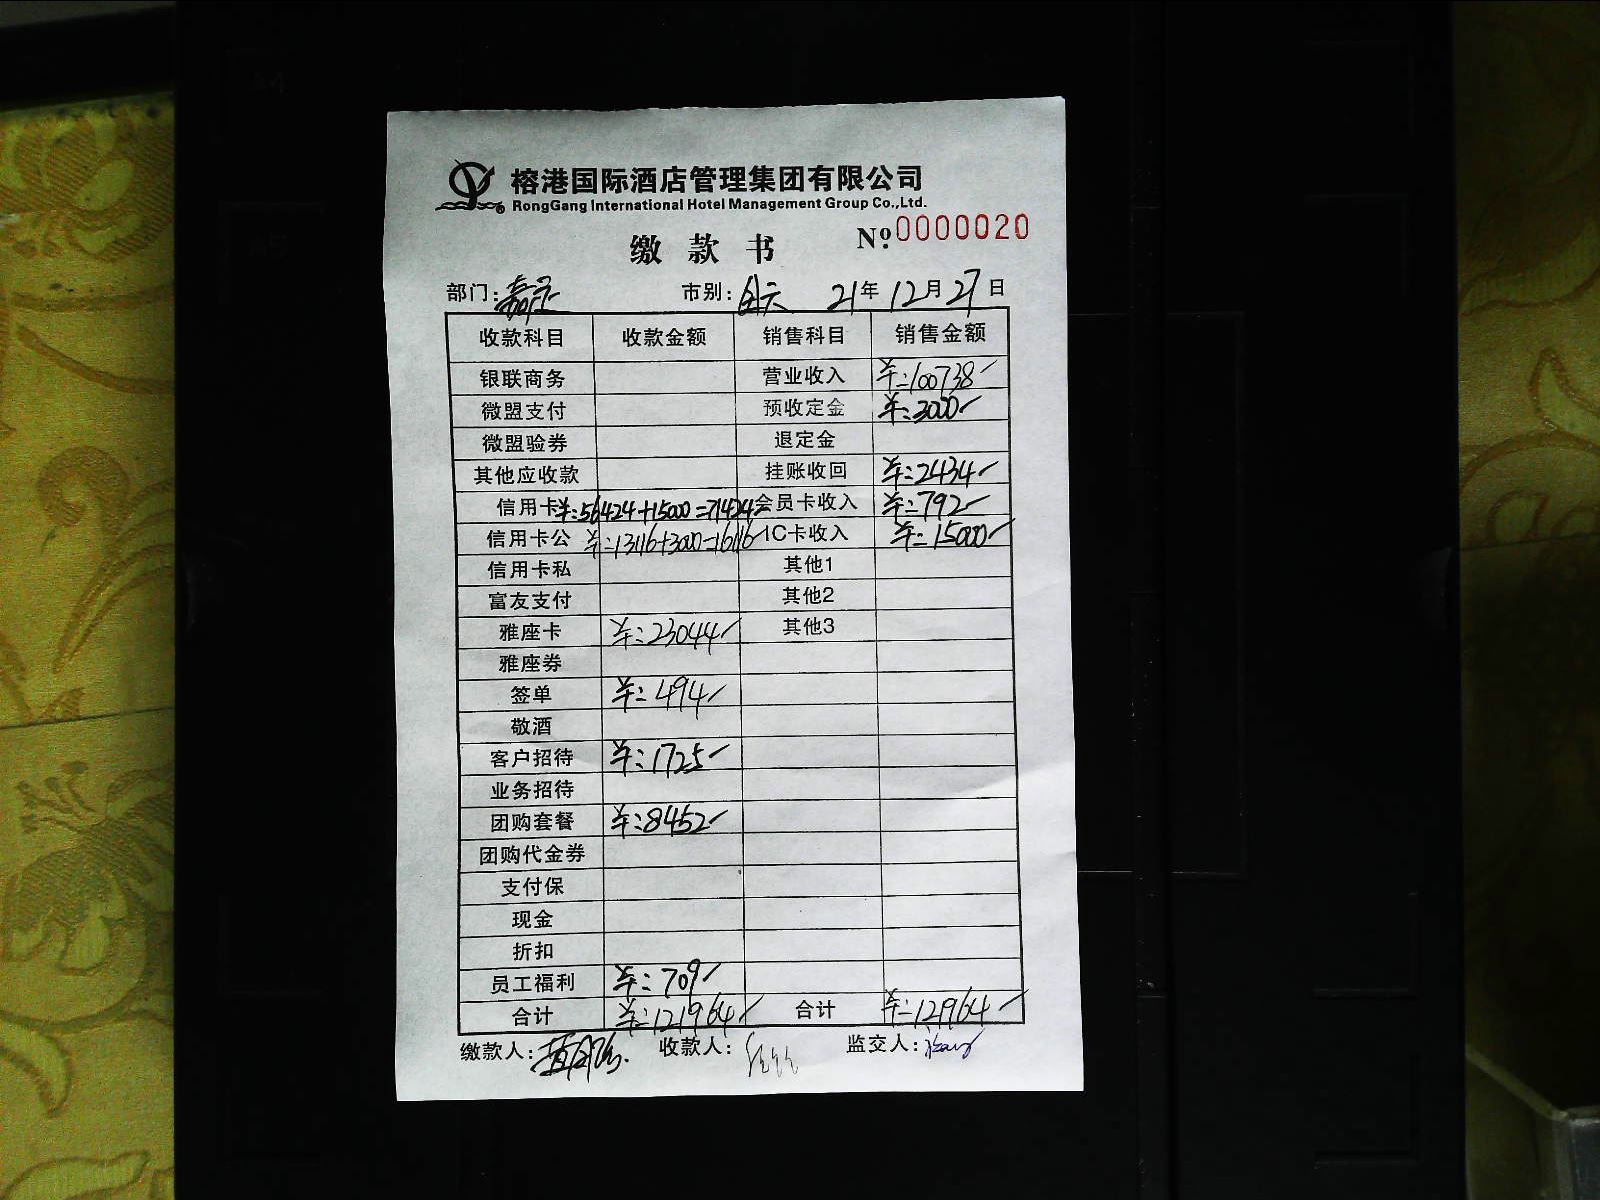 榕港国际酒店管理集团有限公司
RongGang International Hotel Management Group Co.,Ltd.
缴款书 №0000020
部门: 市别: 全天 21年12月27日
收款科目 收款金额 销售科目 销售金额
银联商务 营业收入 ¥:100738
微盟支付 预收定金 ¥:3000
微盟验券 退定金
其他应收款 挂账收回 ¥:2434
信用卡 ¥:56424+15000=71424 会员卡收入 ¥:792
信用卡公 ¥:13116+3000=16116 IC卡收入 ¥:15000
信用卡私 其他1
富友支付 其他2
雅座卡 ¥:23044 其他3
雅座券
签单 ¥:494
敬酒
客户招待 ¥:1725
业务招待
团购套餐 ¥:8452
团购代金券
支付保
现金
折扣
员工福利 ¥:709
合计 ¥:121964 合计 ¥:121964
缴款人: 收款人: 监交人: